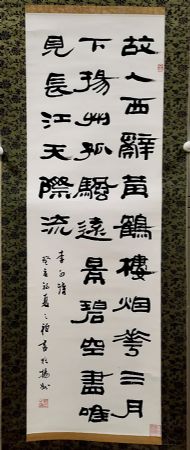 故人西辭黄鶴樓烟華三月
下揚州孤颿遠景碧空盡唯
見長江天際流
李白詩
癸亥初夏之書於揚州